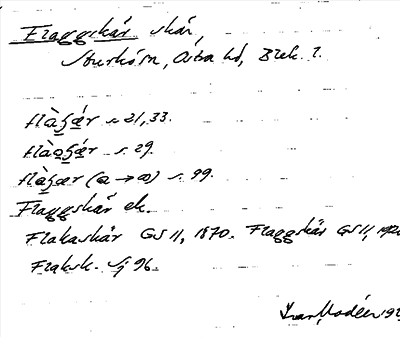 Flaggskär skär,
Sturkö sn, Östra hd, Blek. l.
flàgǽr s. 21, 33.
flàǫgǽr s. 29.
flàgær (a → a) s. 99.
Flaggskär ek.
Flakaskär GS 11, 1870. Flaggskär GS 11,
Flaksk. Sj 96.
Ivar Modéer 19